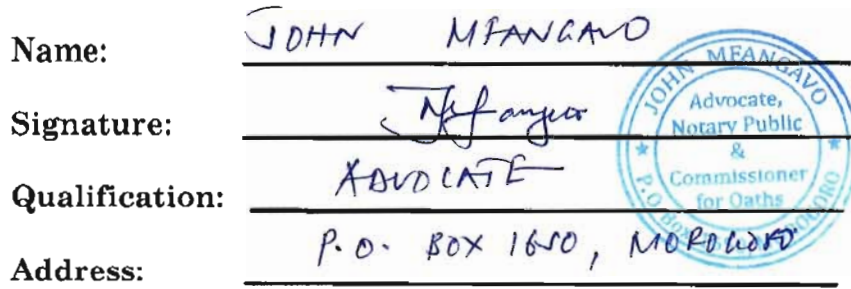 Name: JOHN MFANGAVO
Signature:
Qualification: ADVOCATE
Address: P.O. BOX 1650, MOROGORO
JOHN MFANGAVO
Advocate,
Notary Public
&
Commissioner
for Oaths
P.O Box MOROGORO